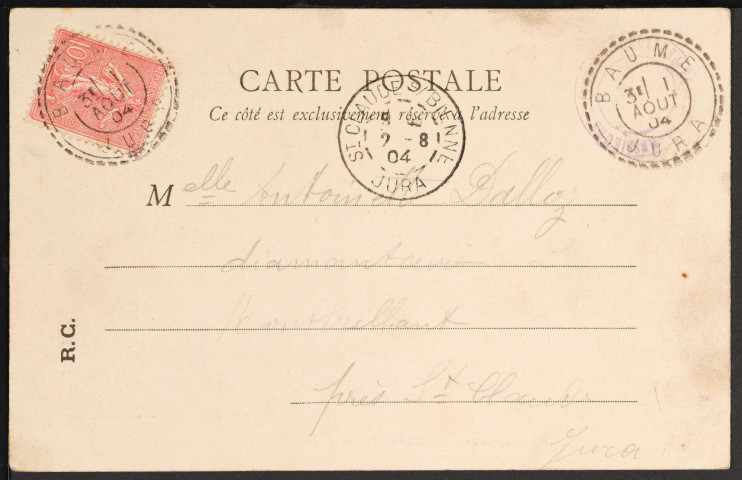 CARTE POSTALE
Ce côté est exclusivement réservé à l'adresse
BAUME
3E 1
AOUT
04
JURA
BAUME
3E 1
AOUT
04
JURA
10
ST CLAUDE S/ BIENNE
2 -8
04
JURA
Melle Antoinette Dalloz
diamantaire à
Montbrillant
près St Claude
Jura
R.C.